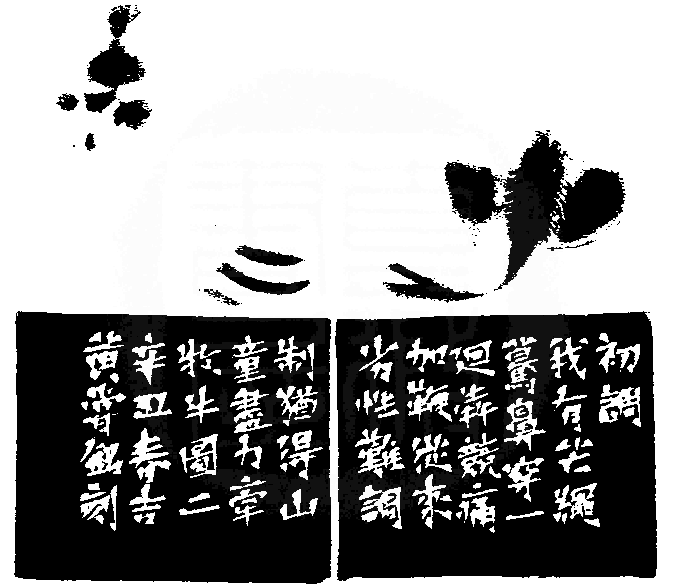 初調
我有芒繩
驀鼻穿一
迴奔競痛
加鞭從來
劣性難調
制猶得山
童盡力牽
牧牛圖二
辛丑春吉
黃銘刻